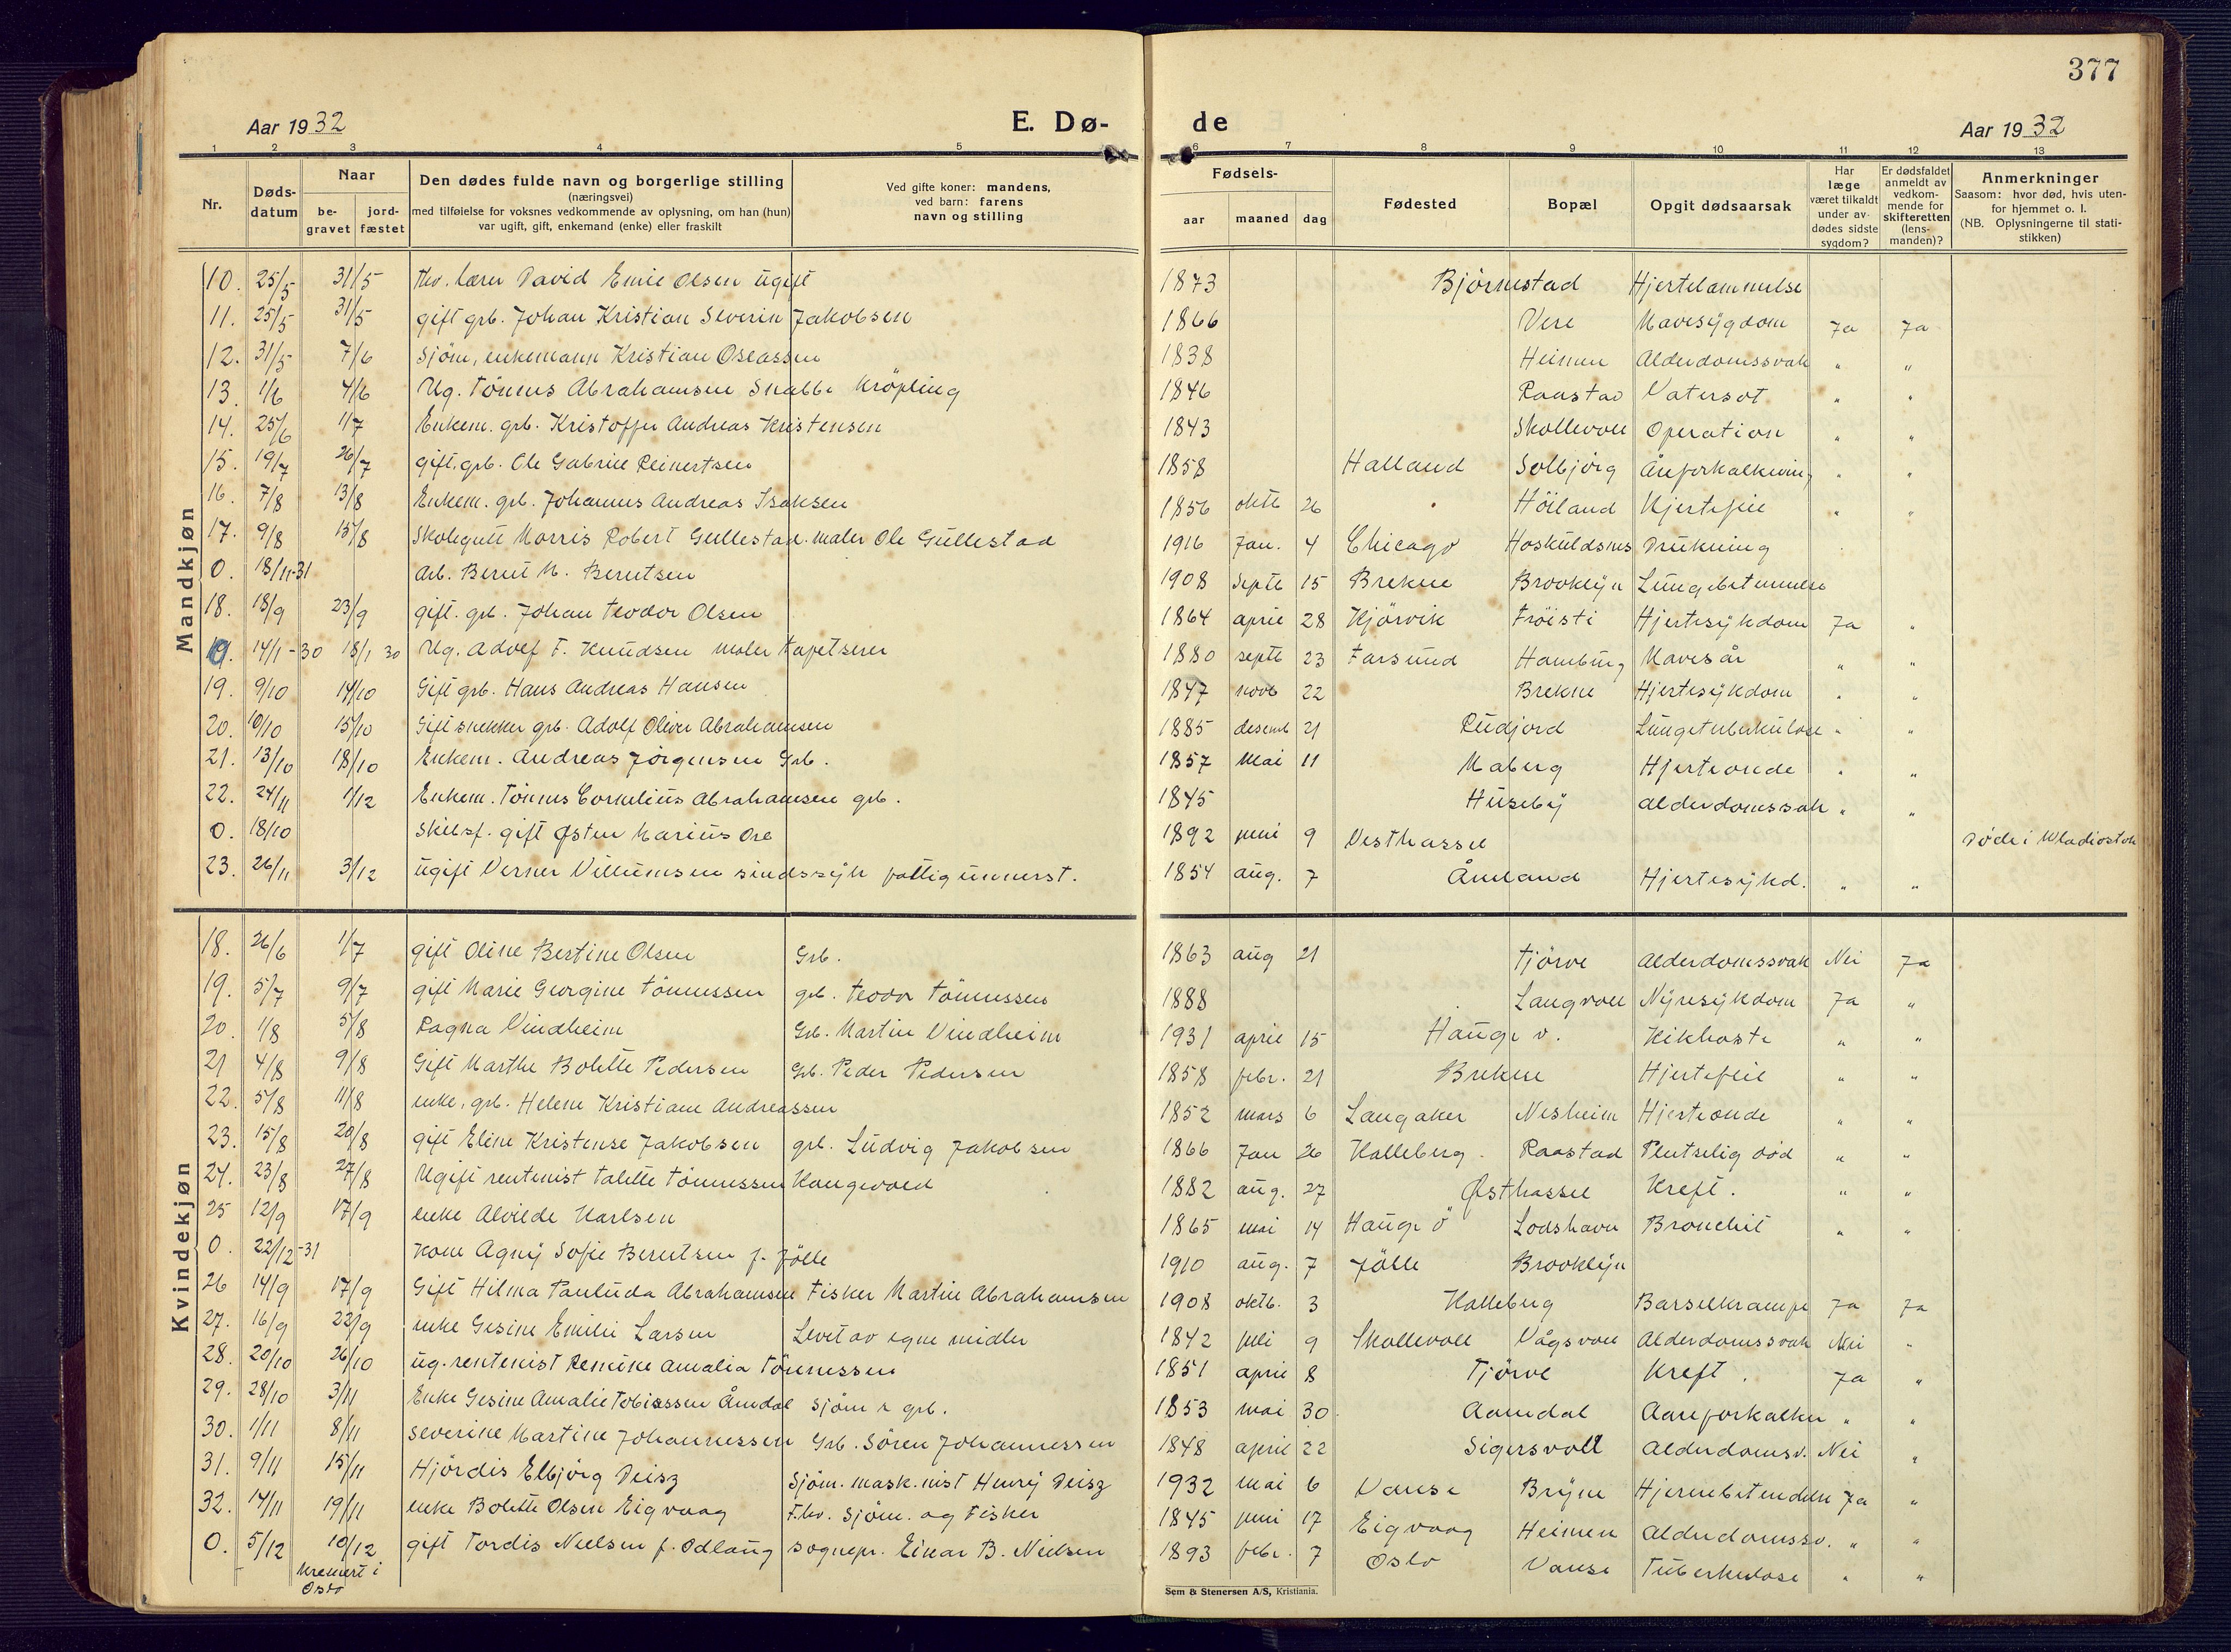 377
Aar 1932
E. Dø-
de
Aar 1932
1 2 3 4 5 6 7 8 9 10 11 12 13
Nr.
Døds-
datum
Naar
be-
gravet
jord-
fæstet
Den dødes fulde navn og borgerlige stilling
(næringsvei)
med tilføielse for voksnes vedkommende av oplysning, om han (hun)
var ugift, gift, enkemand (enke) eller fraskilt
Ved gifte koner: mandens,
ved barn: farens
navn og stilling
Fødsels-
aar maaned dag
Fødested
Bopæl
Opgit dødsaarsak
Har
læge
været tilkaldt
under av-
dødes sidste
sygdom?
Er dødsfaldet
anmeldt av
vedkom-
mende for
skifteretten
(lens-
manden)?
Anmerkninger
Saasom: hvor død, hvis uten-
for hjemmet o. l.
(NB. Oplysningerne til stati-
stikken)
Mandkjøn
10. 25/5 31/5 fhv. lærer David Emil Olsen ugift 1873 Bjørnestad Hjertelammelse
11. 25/5 31/5 gift grb. Johan Kristian Severin Jakobsen 1866 Vere Mavesygdom Ja Ja
12. 31/5 7/6 Sjøm, enkemann Kristian Oseassen 1838 Heimen Alderdomssvak " "
13. 1/6 4/6 Ug. Tönnes Abrahamsen Snabbe Kröpling 1846 Raastad Vatersot " "
14. 25/6 1/7 Enkem. grb. Kristoffer Andreas Kristensen 1843 Skollevoll Operation " "
15. 19/7 26/7 gift. grb. Ole Gabriel Reinertsen 1858 Halland Solbjörg Åreforkalkning " "
16. 7/8 13/8 Enkem. grb. Johannes Andreas Isaksen 1856 oktb 26 " Höiland Hjertefeil " "
17. 9/8 15/8 Skolegutt Morris Robert Gullestad. maler Ole Gullestad 1916 Jan. 4 Chicago Hoskuldsnes Drukning
0. 18/11-31 Arb. Berent N. Berntsen 1908 Septb 15 Brekne Brooklyn Lungebetennelse
18. 18/9 23/9 gift. grb. Johan Teodor Olsen 1864 april 28 Kjörvik Tröisti Hjertesykdom Ja "
19. 14/1-30 18/1 30 Ug. Adolf F. Knudsen maler tapetserer 1880 septb 23 Farsund Hamburg Mavesår " "
19. 9/10 14/10 Gift grb. Hans Andreas Hansen 1847 novb 22 Brekne Hjertesykdom " "
20. 10/10 15/10 Gift snekker grb. Adolf Oliver Abrahamsen 1885 desemb 21 Rudjord Lungetuberkulose " "
21. 13/10 18/10 Enkem. Andreas Jörgensen Grb. 1857 Mai 11 Maberg Hjerteonde " "
22. 24/11 1/12 Enkem. Tönnes Cornelius Abrahamsen grb. 1845 Huseby alderdomssvak " "
0. 18/10 Skibsf. gift Østen Marius Ore 1892 juni 9 Vesthassel Döde i Wladiostok
23. 26/11 3/12 ugift Verner Villumsen sindssyk fattigunnerst. 1854 aug. 7 Åmland Hjertesykd. " "
Kvindekjøn
18. 26/6 1/7 gift Oline Bertine Olsen Grb. 1863 aug 21 Tjörve Alderdomssvak Nei Ja
19. 5/7 9/7 gift Marie Georgine Tönnessen grb. Teodor Tönnessen 1888 Langvoll Nyresykdom Ja "
20. 1/8 5/8 Ragna Vindheim Grb. Martin Vindheim 1931 april 15 Hauge v. Kikhoste " "
21 4/8 9/8 Gift Marthe Bolette Pedersen Grb. Peder Pedersen 1858 febr. 21 Brekne Hjertefeil " "
22. 5/8 11/8 enke, grb. Helene Kristiane Andreassen 1852 mars 6 Langaker Nesheim Hjerteonde " "
23. 15/8 20/8 gift Eline Kristense Jakobsen grb. Ludvig Jakobsen 1866 Jan 26 Kalleberg. Raastad Plutselig död " "
24. 23/8 27/8 Ugift rentenist Talette Tönnessen Kongevold 1882 aug. 27 Østhassel Kreft. " "
25 12/9 17/9 enke Alvilde Karlsen 1865 mai 14 Hauge ö Lodshavn Bronchit " "
0. 22/12-31 Kone Agny Sofie Berntsen f. Jölle 1910 aug. 7 Jölle Brooklyn
26 14/9 17/9 Gift Hilma Pauluda Abrahamsen Fisker Martin Abrahamsen 1908 oktb. 3 Kalleberg Barselkrampe Ja Ja
27. 16/9 22/9 enke Gesine Emilie Larsen Levet av egne midler 1842 juli 9 Skollevoll Vågsvoll Alderdomssvak Nei "
28. 20/10 26/10 ug. rentenist Remine Amalia Tönnessen 1851 april 8 Tjörve Kreft. Ja "
29. 28/10 3/11 Enke Gesine Amalie Tobiassen Åmdal sjöm & grb. 1853 mai 30 Aamdal Aareforkalkn " "
30. 1/11 8/11 Severine Martine Johannessen Grb. Sören Johannessen 1848 april 22 Sigersvoll Alderdomsv. Nei "
31. 9/11 15/11 Hjördis Elbjörg Deisz Sjöm. mask.nist Henry Deisz 1932 mai 6 Vanse Bryne Hjernebetendelse Ja "
32. 14/11 19/11 enke Bolette Olsen Eigvaag F.hv. sjöm. og Fisker 1845 juni 17 Eigvaag Heimen Alderdomssv. " "
0. 5/12 10/12 gift Tordis Nielsen f. Odlaug sognepr. Einar B. Nielsen 1893 febr. 7 Oslo Vanse Tuberkulose " "
Kremert i
Oslo
Sem & Stenersen A/S, Kristiania.